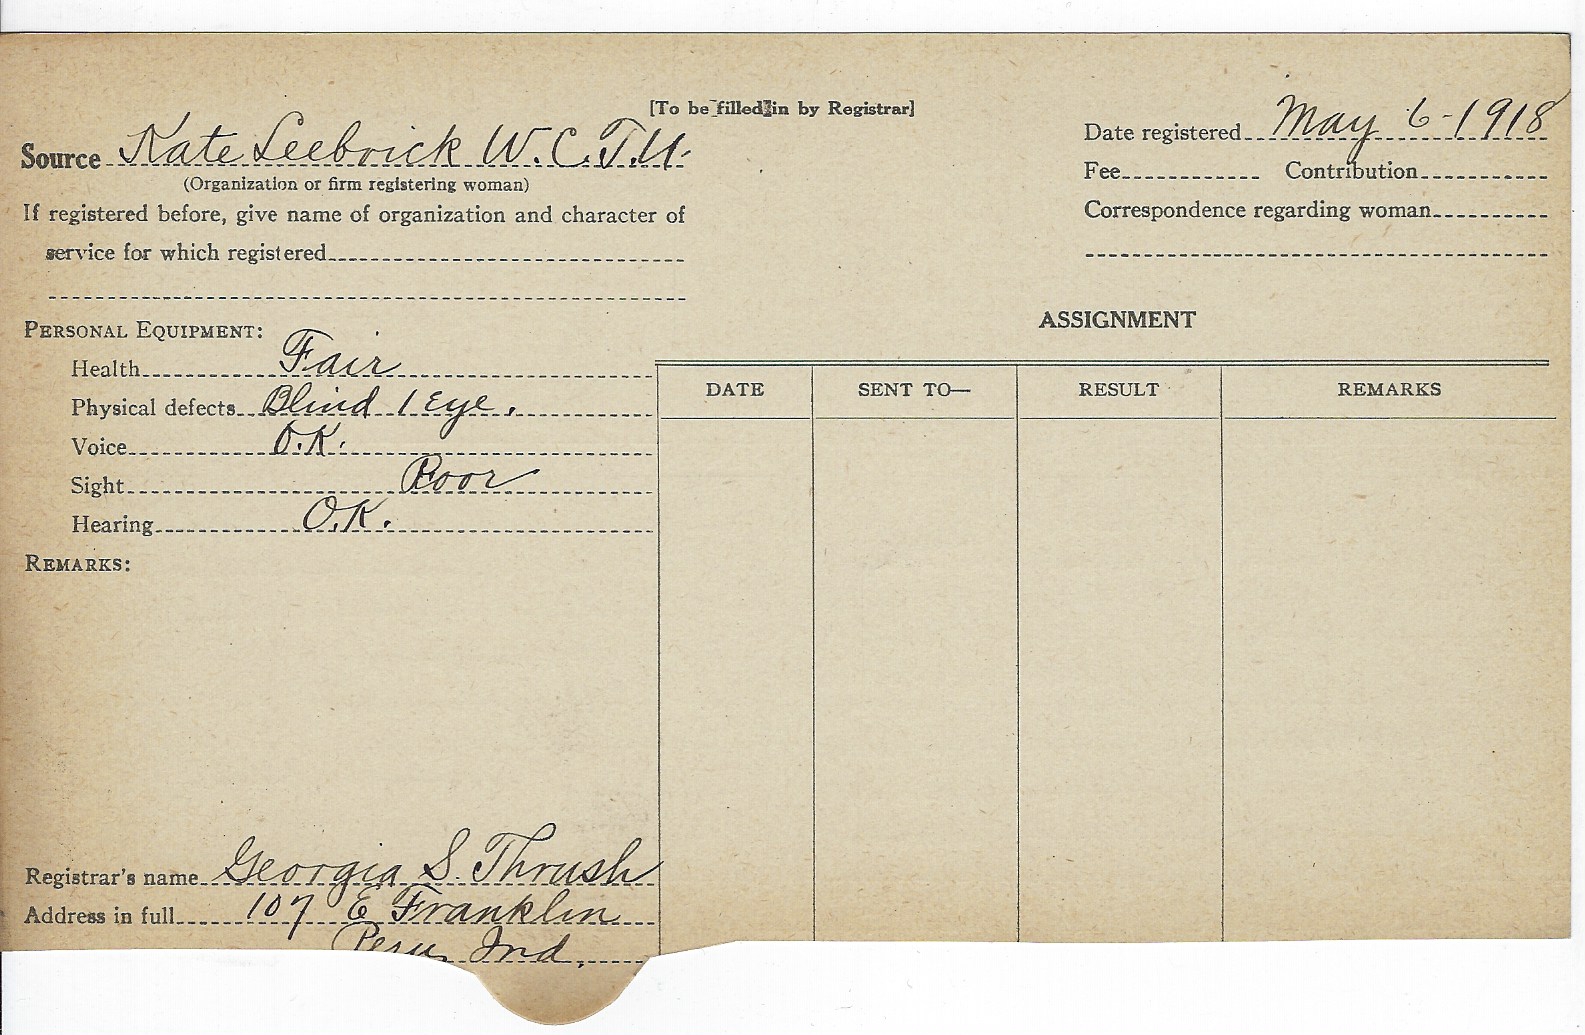 [To be filled in by Registrar]
Source Kate Seebrick W.C.T.U.
(Organization or firm registering woman)
If registered before, give name of organization and character of
service for which registered
Date registered May 6-1918
Fee Contribution
Correspondence regarding woman
PERSONAL EQUIPMENT:
Health Fair
Physical defects Blind 1 Eye.
Voice O.K.
Sight Poor
Hearing O.K.
REMARKS:
ASSIGNMENT
DATE SENT TO— RESULT REMARKS
Registrar's name Georgia S. Thrush
Address in full 107 E Franklin
Peru, Ind.